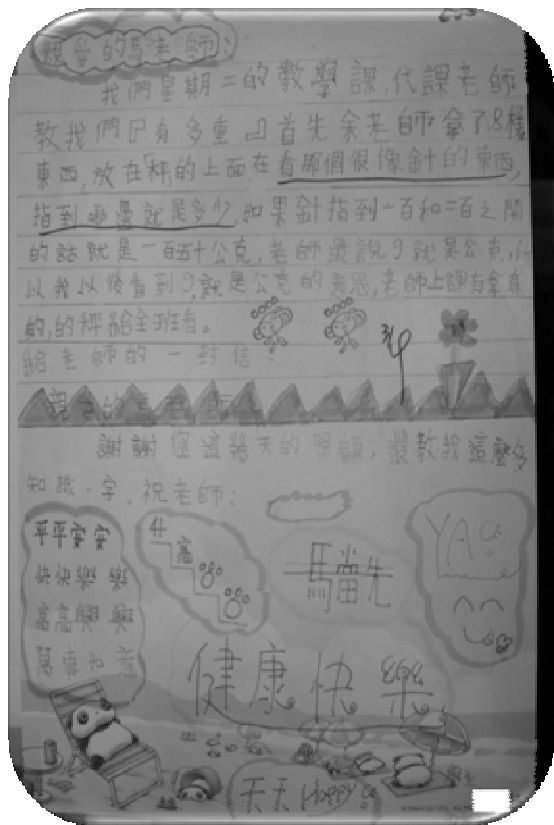 親愛的馬老師:
我們星期二的數學課,代課老師
教我們『有多重』首先余老師拿了18樣
東西,放在「秤」的上面在看那個很像針的東西,
指到哪邊就是多少,如果針指到一百和二百之間
的話就是一百五十公克,老師還說g就是公克,所
以我以後看到g,就是公克的意思,老師上課有拿真
的,的秤給全班看。
給老師的一封信:
謝謝您這幾天的照顧,還教我這麼多
知識、字,祝老師:
平平安安
快快樂樂
高高興興
萬事如意
升
高
馬當先
YA
健康快樂
天天Happy